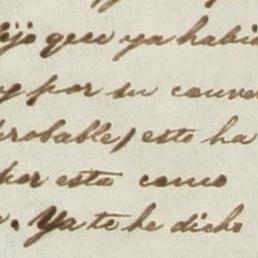 dijo que ya habia
y por su conver
probable) esto ha
por esta como
. Ya te he dicho